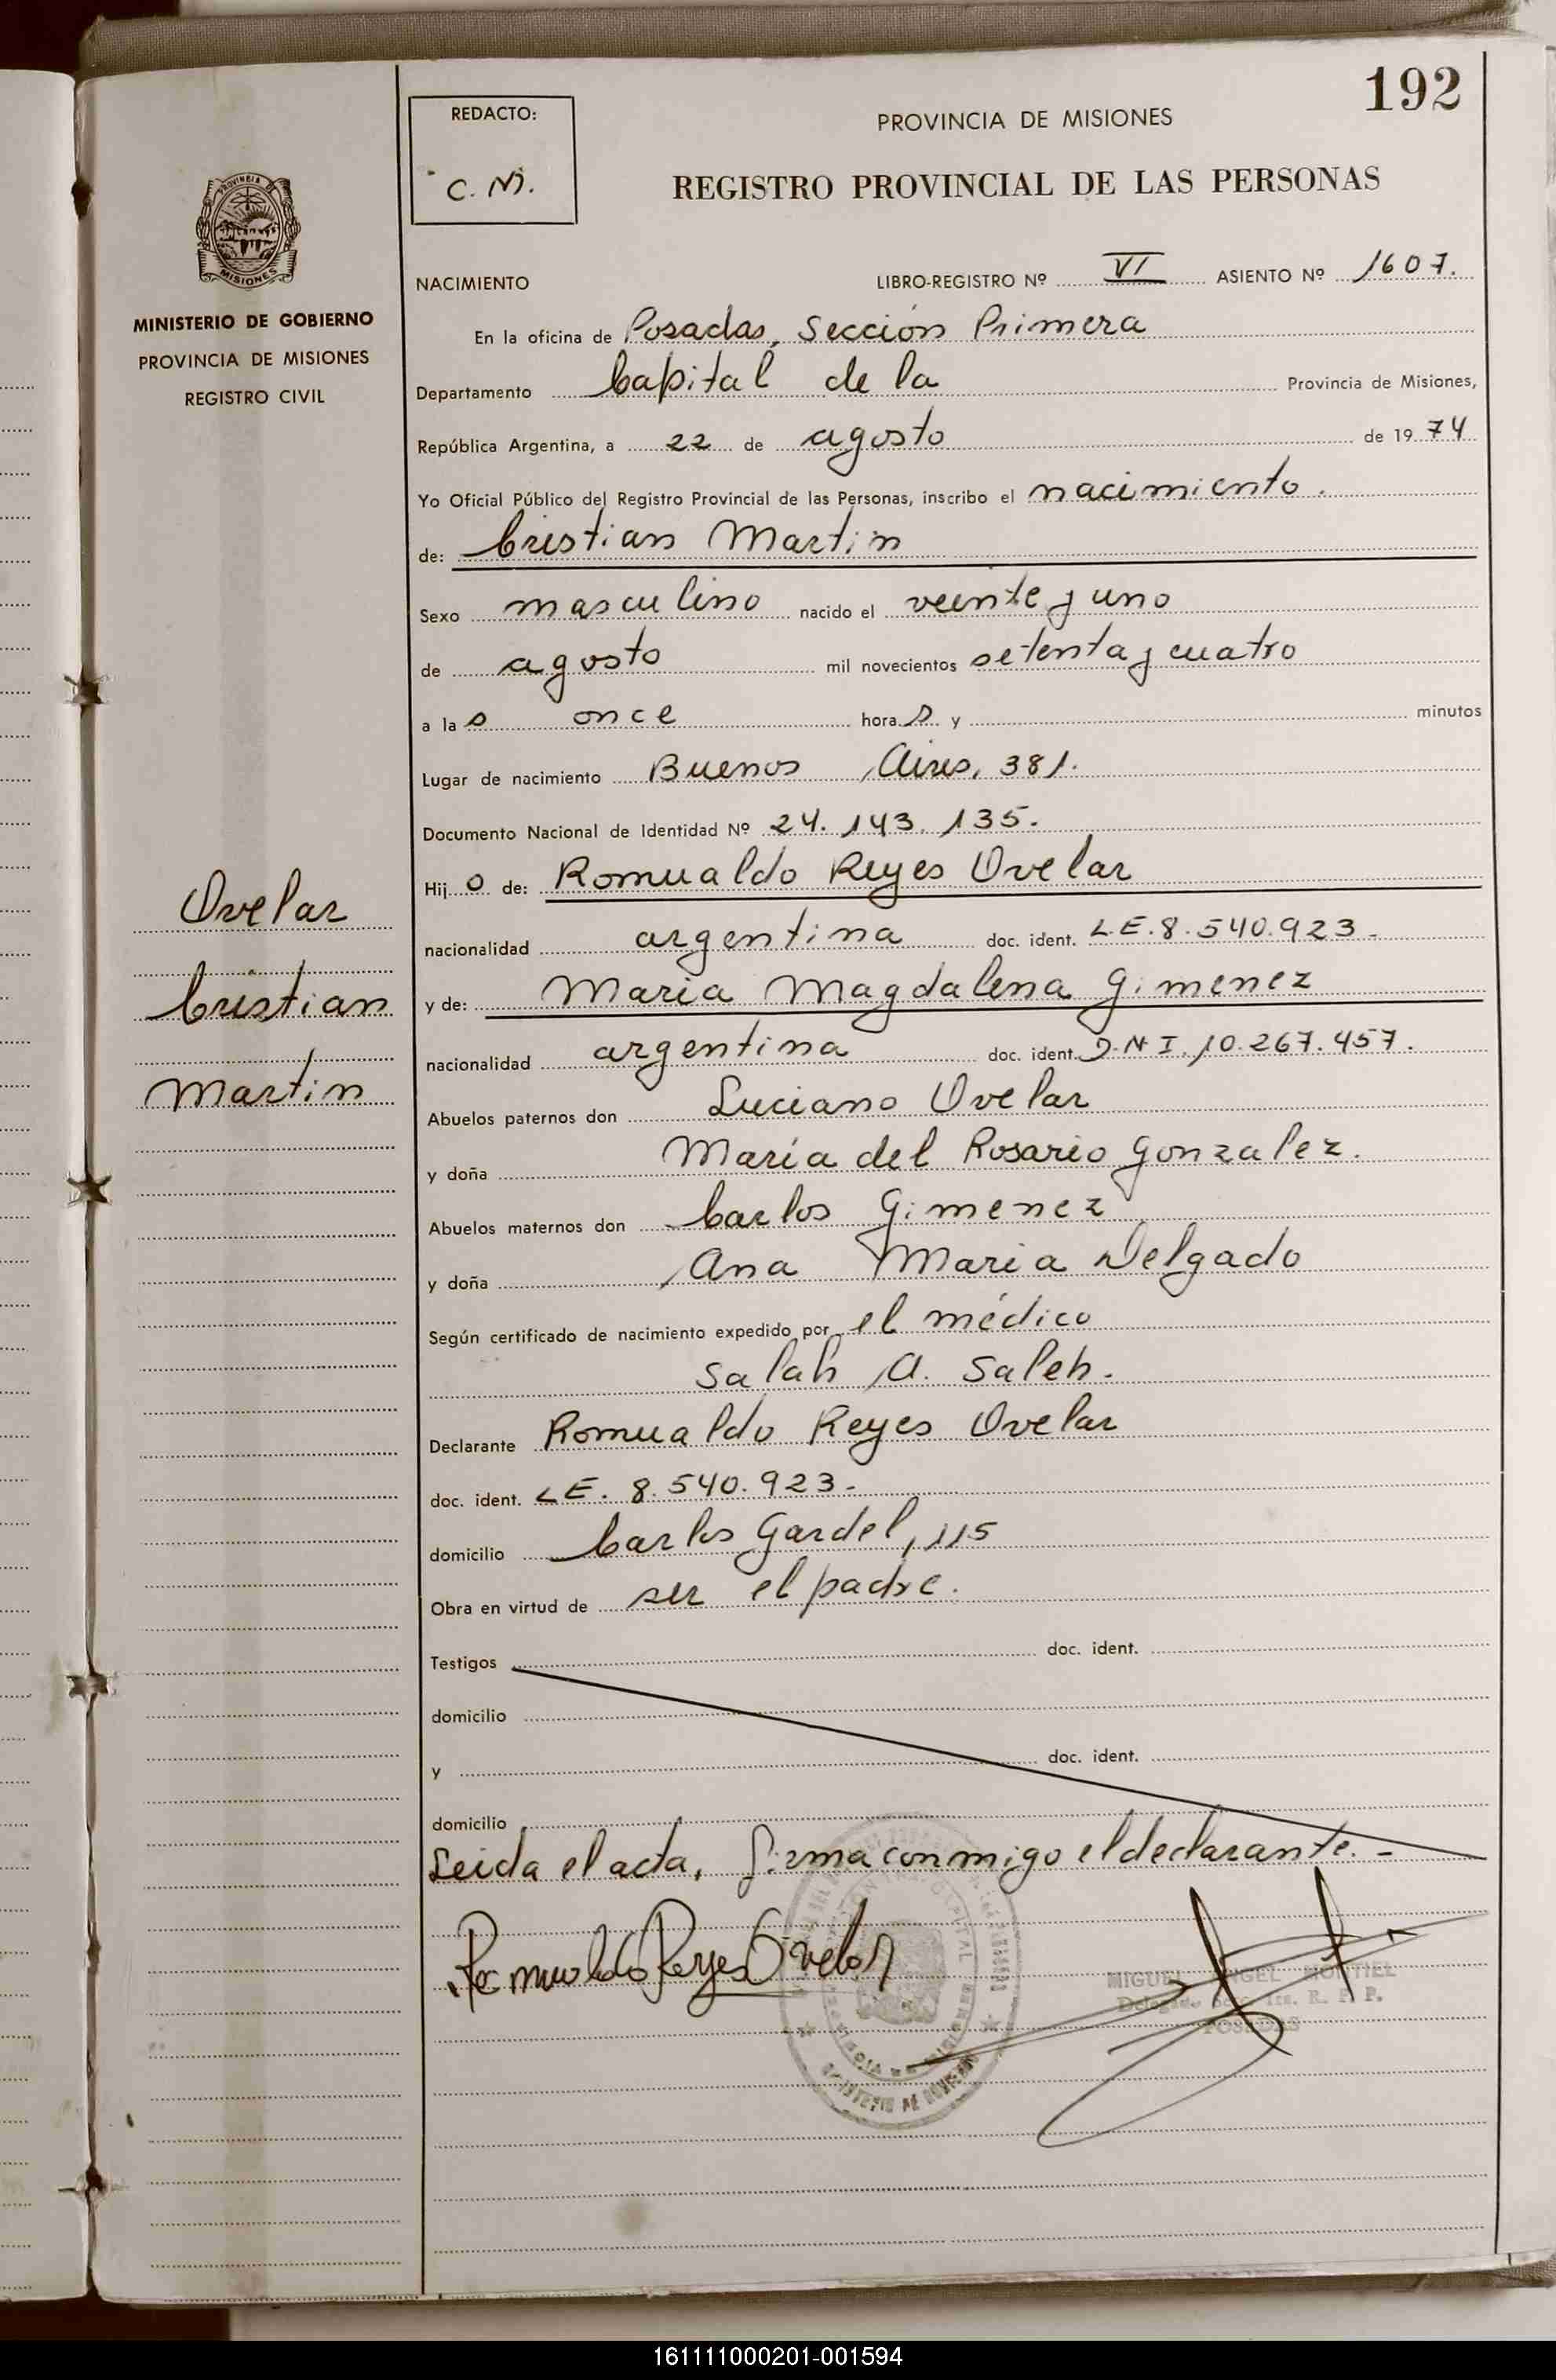 192
REDACTO:
C. M.
PROVINCIA DE MISIONES
REGISTRO PROVINCIAL DE LAS PERSONAS
PROVINCIA DE
MISIONES
MINISTERIO DE GOBIERNO
PROVINCIA DE MISIONES
REGISTRO CIVIL
NACIMIENTO LIBRO-REGISTRO Nº VI ASIENTO Nº 1607.
En la oficina de Posadas, Sección Primera
Departamento Capital de la Provincia de Misiones,
República Argentina, a 22 de agosto de 1974
Yo Oficial Público del Registro Provincial de las Personas, inscribo el nacimiento.
de: Cristian Martin
Sexo masculino nacido el veinte y uno
de agosto mil novecientos setenta y cuatro
a las once horas y minutos
Lugar de nacimiento Buenos Aires, 381.
Documento Nacional de Identidad Nº 24.143.135.
Hijo de: Romualdo Reyes Ovelar
nacionalidad argentina doc. ident. L.E. 8.540.923-
y de: Maria Magdalena Gimenez
nacionalidad argentina doc. ident. D.N.I. 10.267.457.
Abuelos paternos don Luciano Ovelar
y doña María del Rosario Gonzalez.
Abuelos maternos don Carlos Gimenez
y doña Ana Maria Delgado
Según certificado de nacimiento expedido por el médico
Salah A. Saleh.
Declarante Romualdo Reyes Ovelar
doc. ident. LE. 8.540.923-
domicilio Carlos Gardel, 115
Obra en virtud de ser el padre.
Testigos doc. ident.
domicilio
y doc. ident.
domicilio
Leida el acta, firma conmigo el declarante.-
Romualdo Reyes Ovelar
MIGUEL ANGEL MONTIEL
Delegado Secc. 1ra. R. P. P.
POSADAS
Ovelar
Cristian
Martin
161111000201-001594